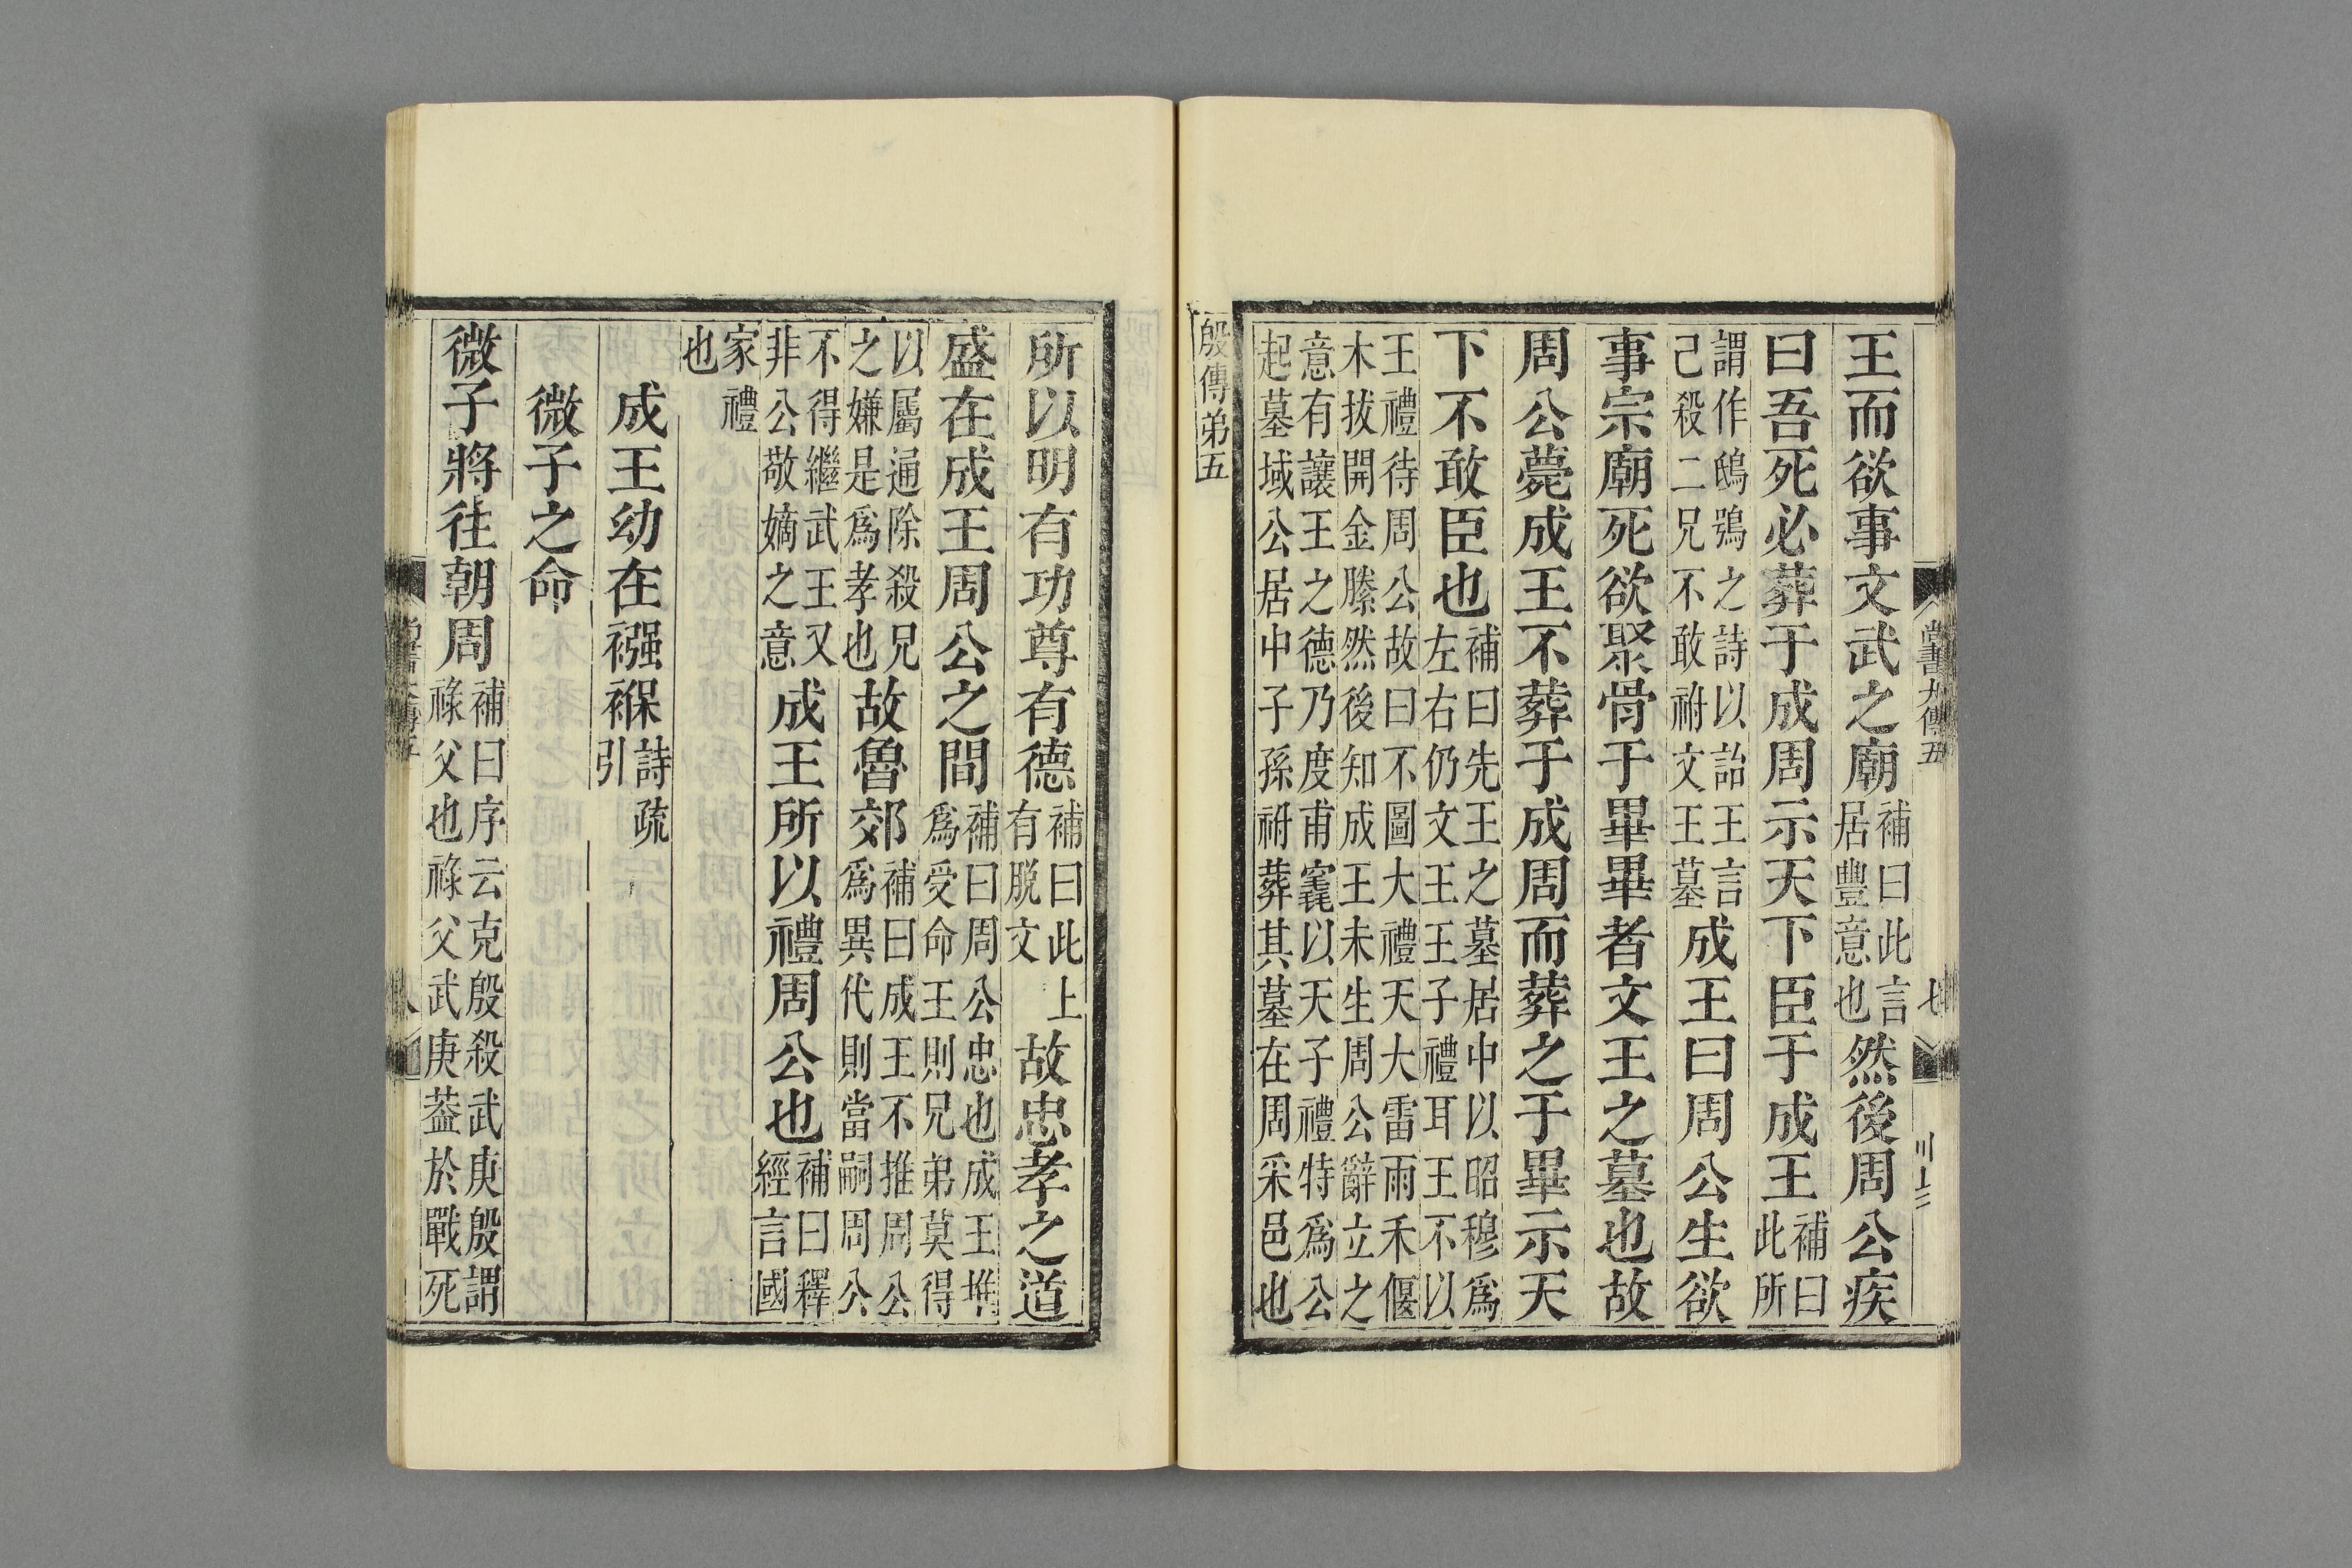 尚書大傳五
七
王而欲事文武之廟補曰此言居豐意也然後周公疾
曰吾死必葬于成周示天下臣于成王補曰此所
謂作鴟鴞之詩以詒王言己殺二兄不敢祔文王墓成王曰周公生欲
事宗廟死欲聚骨于畢畢者文王之墓也故
周公薨成王不葬于成周而葬之于畢示天
下不敢臣也補曰先王之墓居中以昭穆爲左右仍文王王子禮耳王不以
王禮待周公故曰不圖大禮天大雷雨禾偃木拔開金縢然後知成王未生周公辭立之
意有讓王之德乃度甫竁以天子禮特爲公起墓域公居中子孫祔葬其墓在周采邑也
殷傳弟五
所以明有功尊有德補曰此上有脫文故忠孝之道
盛在成王周公之間補曰周公忠也成王推爲受命王則兄弟莫得
以屬通除殺兄之嫌是爲孝也故魯郊補曰成王不推周公爲異代則當嗣周公
不得繼武王又非公敬嫡之意成王所以禮周公也補曰釋經言國
家禮也
成王幼在襁褓詩疏引
微子之命
微子將往朝周補曰序云克殷殺武庚殷謂祿父也祿父武庚葢於戰死